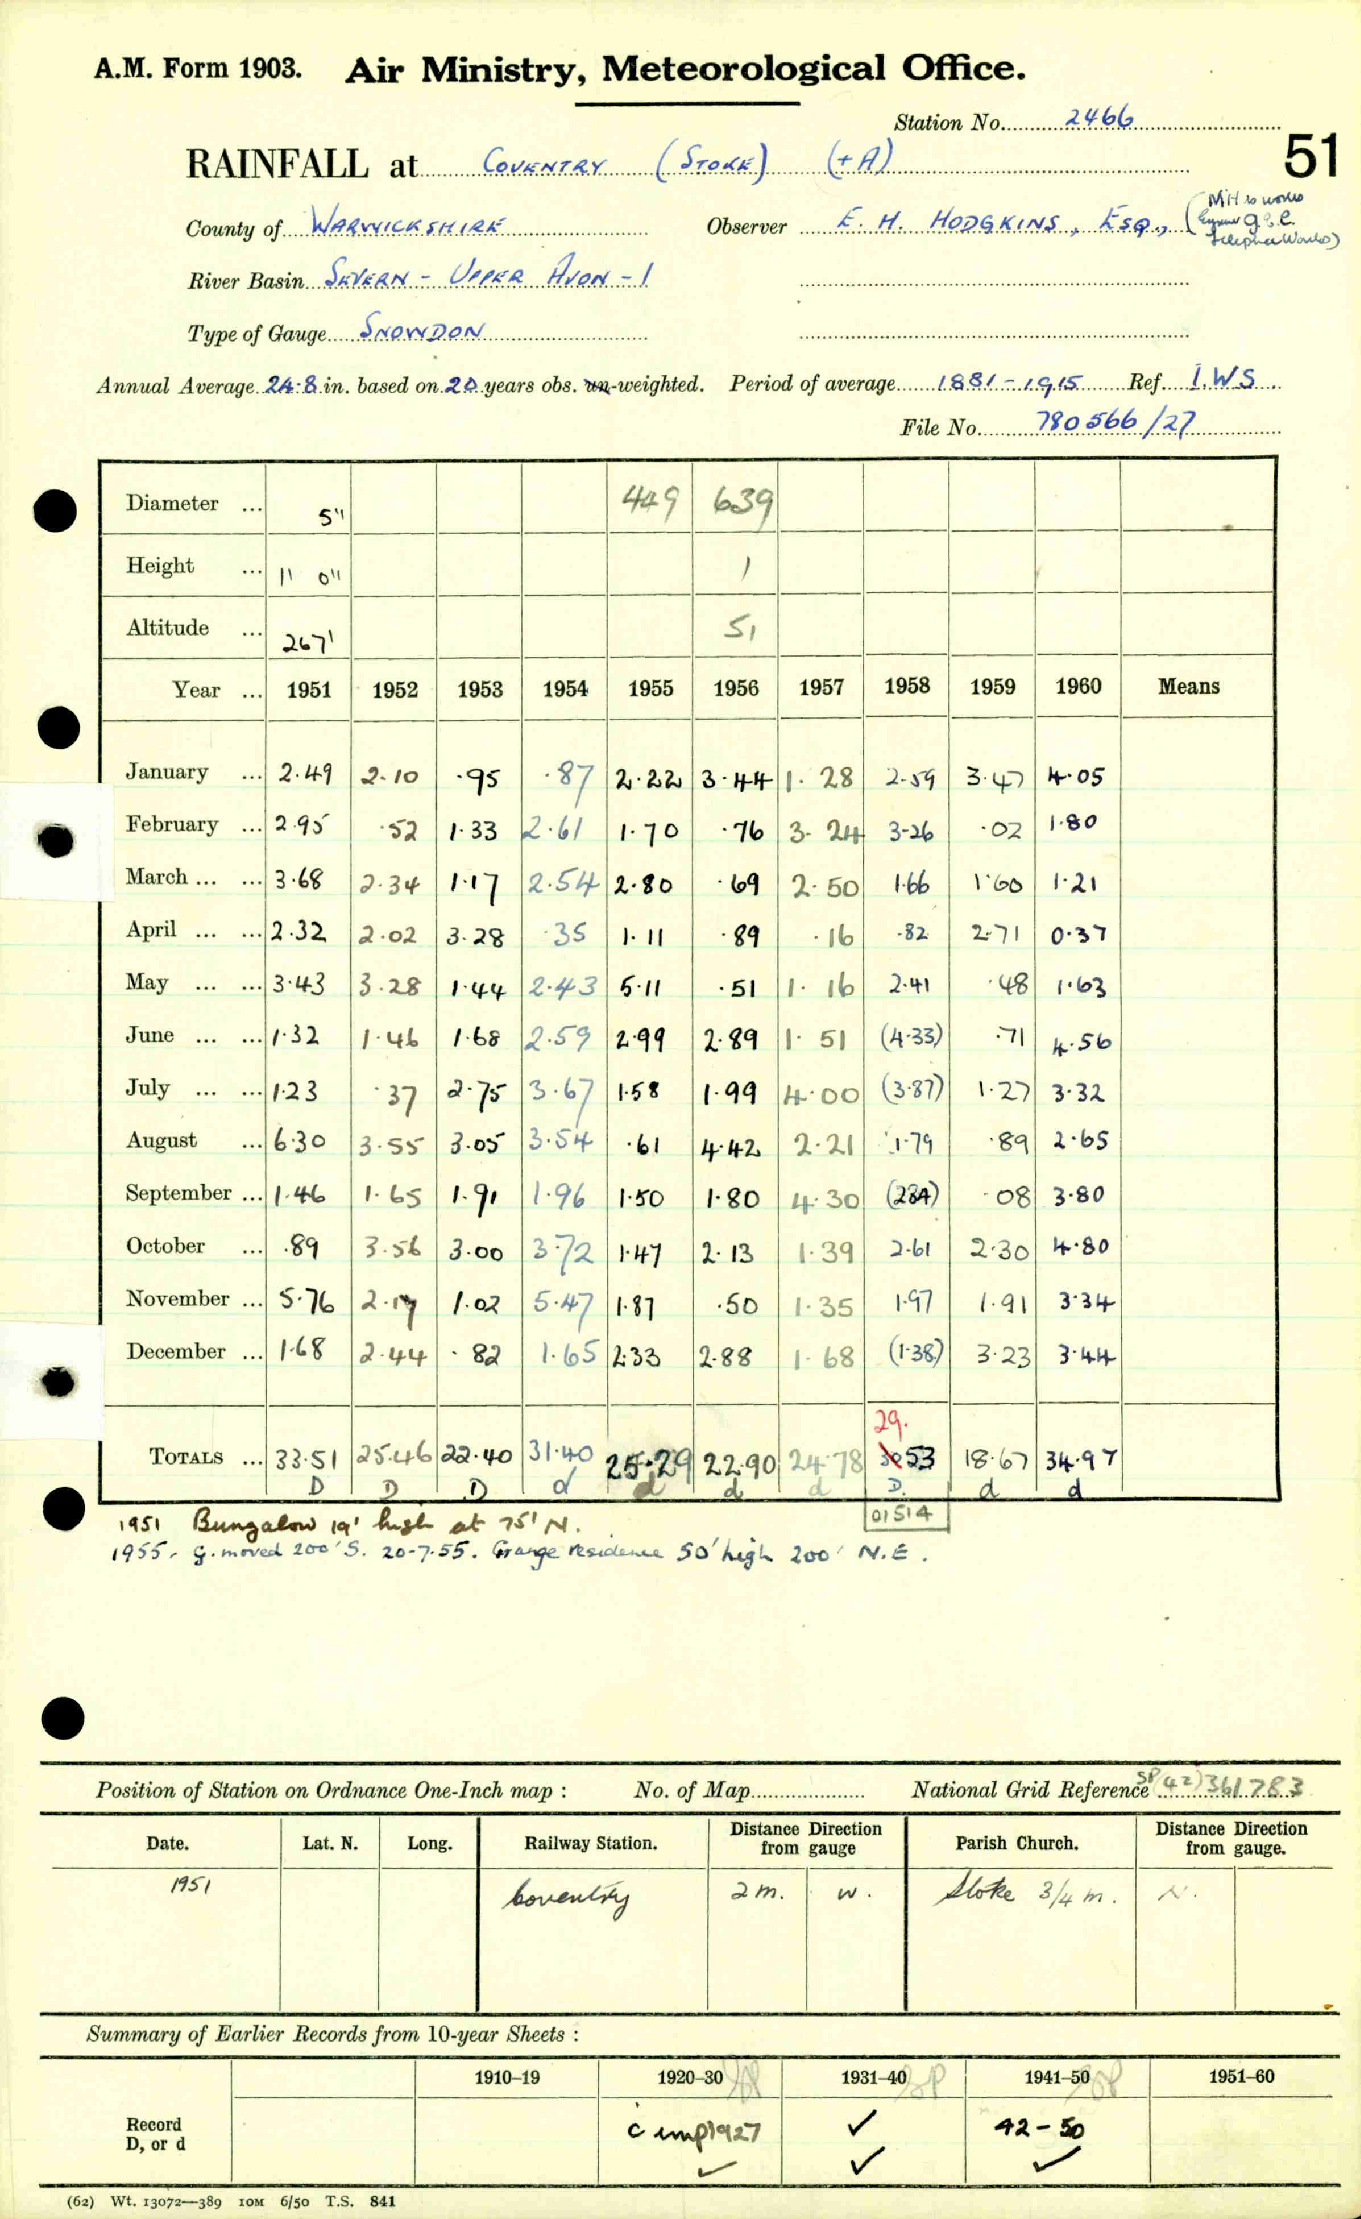 A.M. Form 1903. Air Ministry, Meteorological Office.
Station No. 2466
51
RAINFALL at COVENTRY (STOKE) (+A)
County of WARWICKSHIRE Observer E. H. HODGKINS, ESQ.,
River Basin SEVERN - UPPER AVON - 1
Type of Gauge SNOWDON
Annual Average 24.8 in. based on 20 years obs. un-weighted. Period of average 1881-1915 Ref. I.W.S.
File No. 780566/27
Diameter ... 5" 449 639
Height ... 1' 0" 1
Altitude ... 267' 51
Year ... 1951 1952 1953 1954 1955 1956 1957 1958 1959 1960 Means
January ... 2.49 2.10 .95 .87 2.22 3.44 1.28 2.59 3.47 4.05
February ... 2.95 .52 1.33 2.61 1.70 .76 3.24 3.26 .02 1.80
March ... ... 3.68 2.34 1.17 2.54 2.80 .69 2.50 1.66 1.60 1.21
April ... ... 2.32 2.02 3.28 .35 1.11 .89 .16 .82 2.71 0.37
May ... ... 3.43 3.28 1.44 2.43 5.11 .51 1.16 2.41 .48 1.63
June ... ... 1.32 1.46 1.68 2.59 2.99 2.89 1.51 (4.33) .71 4.56
July ... ... 1.23 .37 2.75 3.67 1.58 1.99 4.00 (3.87) 1.27 3.32
August ... 6.30 3.55 3.05 3.54 .61 4.42 2.21 1.79 .89 2.65
September ... 1.46 1.65 1.91 1.96 1.50 1.80 4.30 (2.84) .08 3.80
October ... .89 3.56 3.00 3.72 1.47 2.13 1.39 2.61 2.30 4.80
November ... 5.76 2.17 1.02 5.47 1.87 .50 1.35 1.97 1.91 3.34
December ... 1.68 2.44 .82 1.65 2.33 2.88 1.68 (1.38) 3.23 3.44
29.
TOTALS ... 33.51 25.46 22.40 31.40 25.29 22.90 24.78 53 18.67 34.97
D D D d d d d D. d d
01514
1951 Bungalow 19' high at 75' N.
1955. G. moved 200' S. 20-7-55. Grange residence 50' high 200' N.E.
Position of Station on Ordnance One-Inch map : No. of Map National Grid Reference SP(42)361783
Date. Lat. N. Long. Railway Station. Distance Direction from gauge Parish Church. Distance Direction from gauge.
1951 Coventry 2 m. W. Stoke 3/4 m. N.
Summary of Earlier Records from 10-year Sheets :
1910–19 1920–30 1931–40 1941–50 1951–60
Record
D, or d
c imp 1927 ✓ 42-50
✓ ✓ ✓
(62) Wt. 13072—389 10M 6/50 T.S. 841